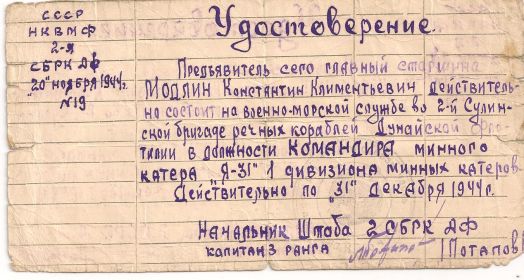 СССР
НКВМФ
2-Я
СБРК ДФ
"20" НОЯБРЯ 1944г.
№19
Удостоверение.
Предъявитель сего главный старшина
МОДЛИН Константин Климентьевич действитель-
но состоит на военно-морской службе во 2-й Сулин-
ской бригаде речных кораблей Дунайской Фло-
тилии в должности КОМАНДИРА минного
катера "Я-31" 1 дивизиона минных катеров.
Действительно по "31" декабря 1944г.
Начальник Штаба 2 СБРК ДФ
капитан 3 ранга
/Потапов/